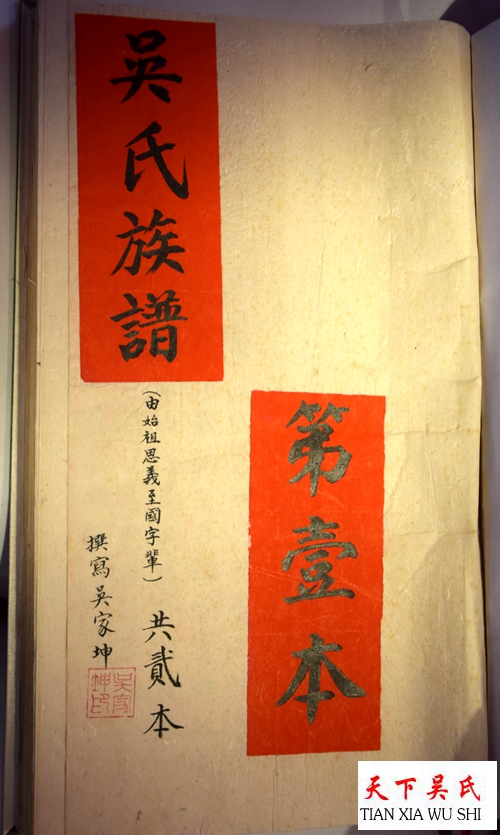 吳氏族譜
第壹本
（由始祖思義至國字輩）
共貳本
撰寫吳家坤
吳家坤印
天下吴氏
TIAN XIA WU SHI